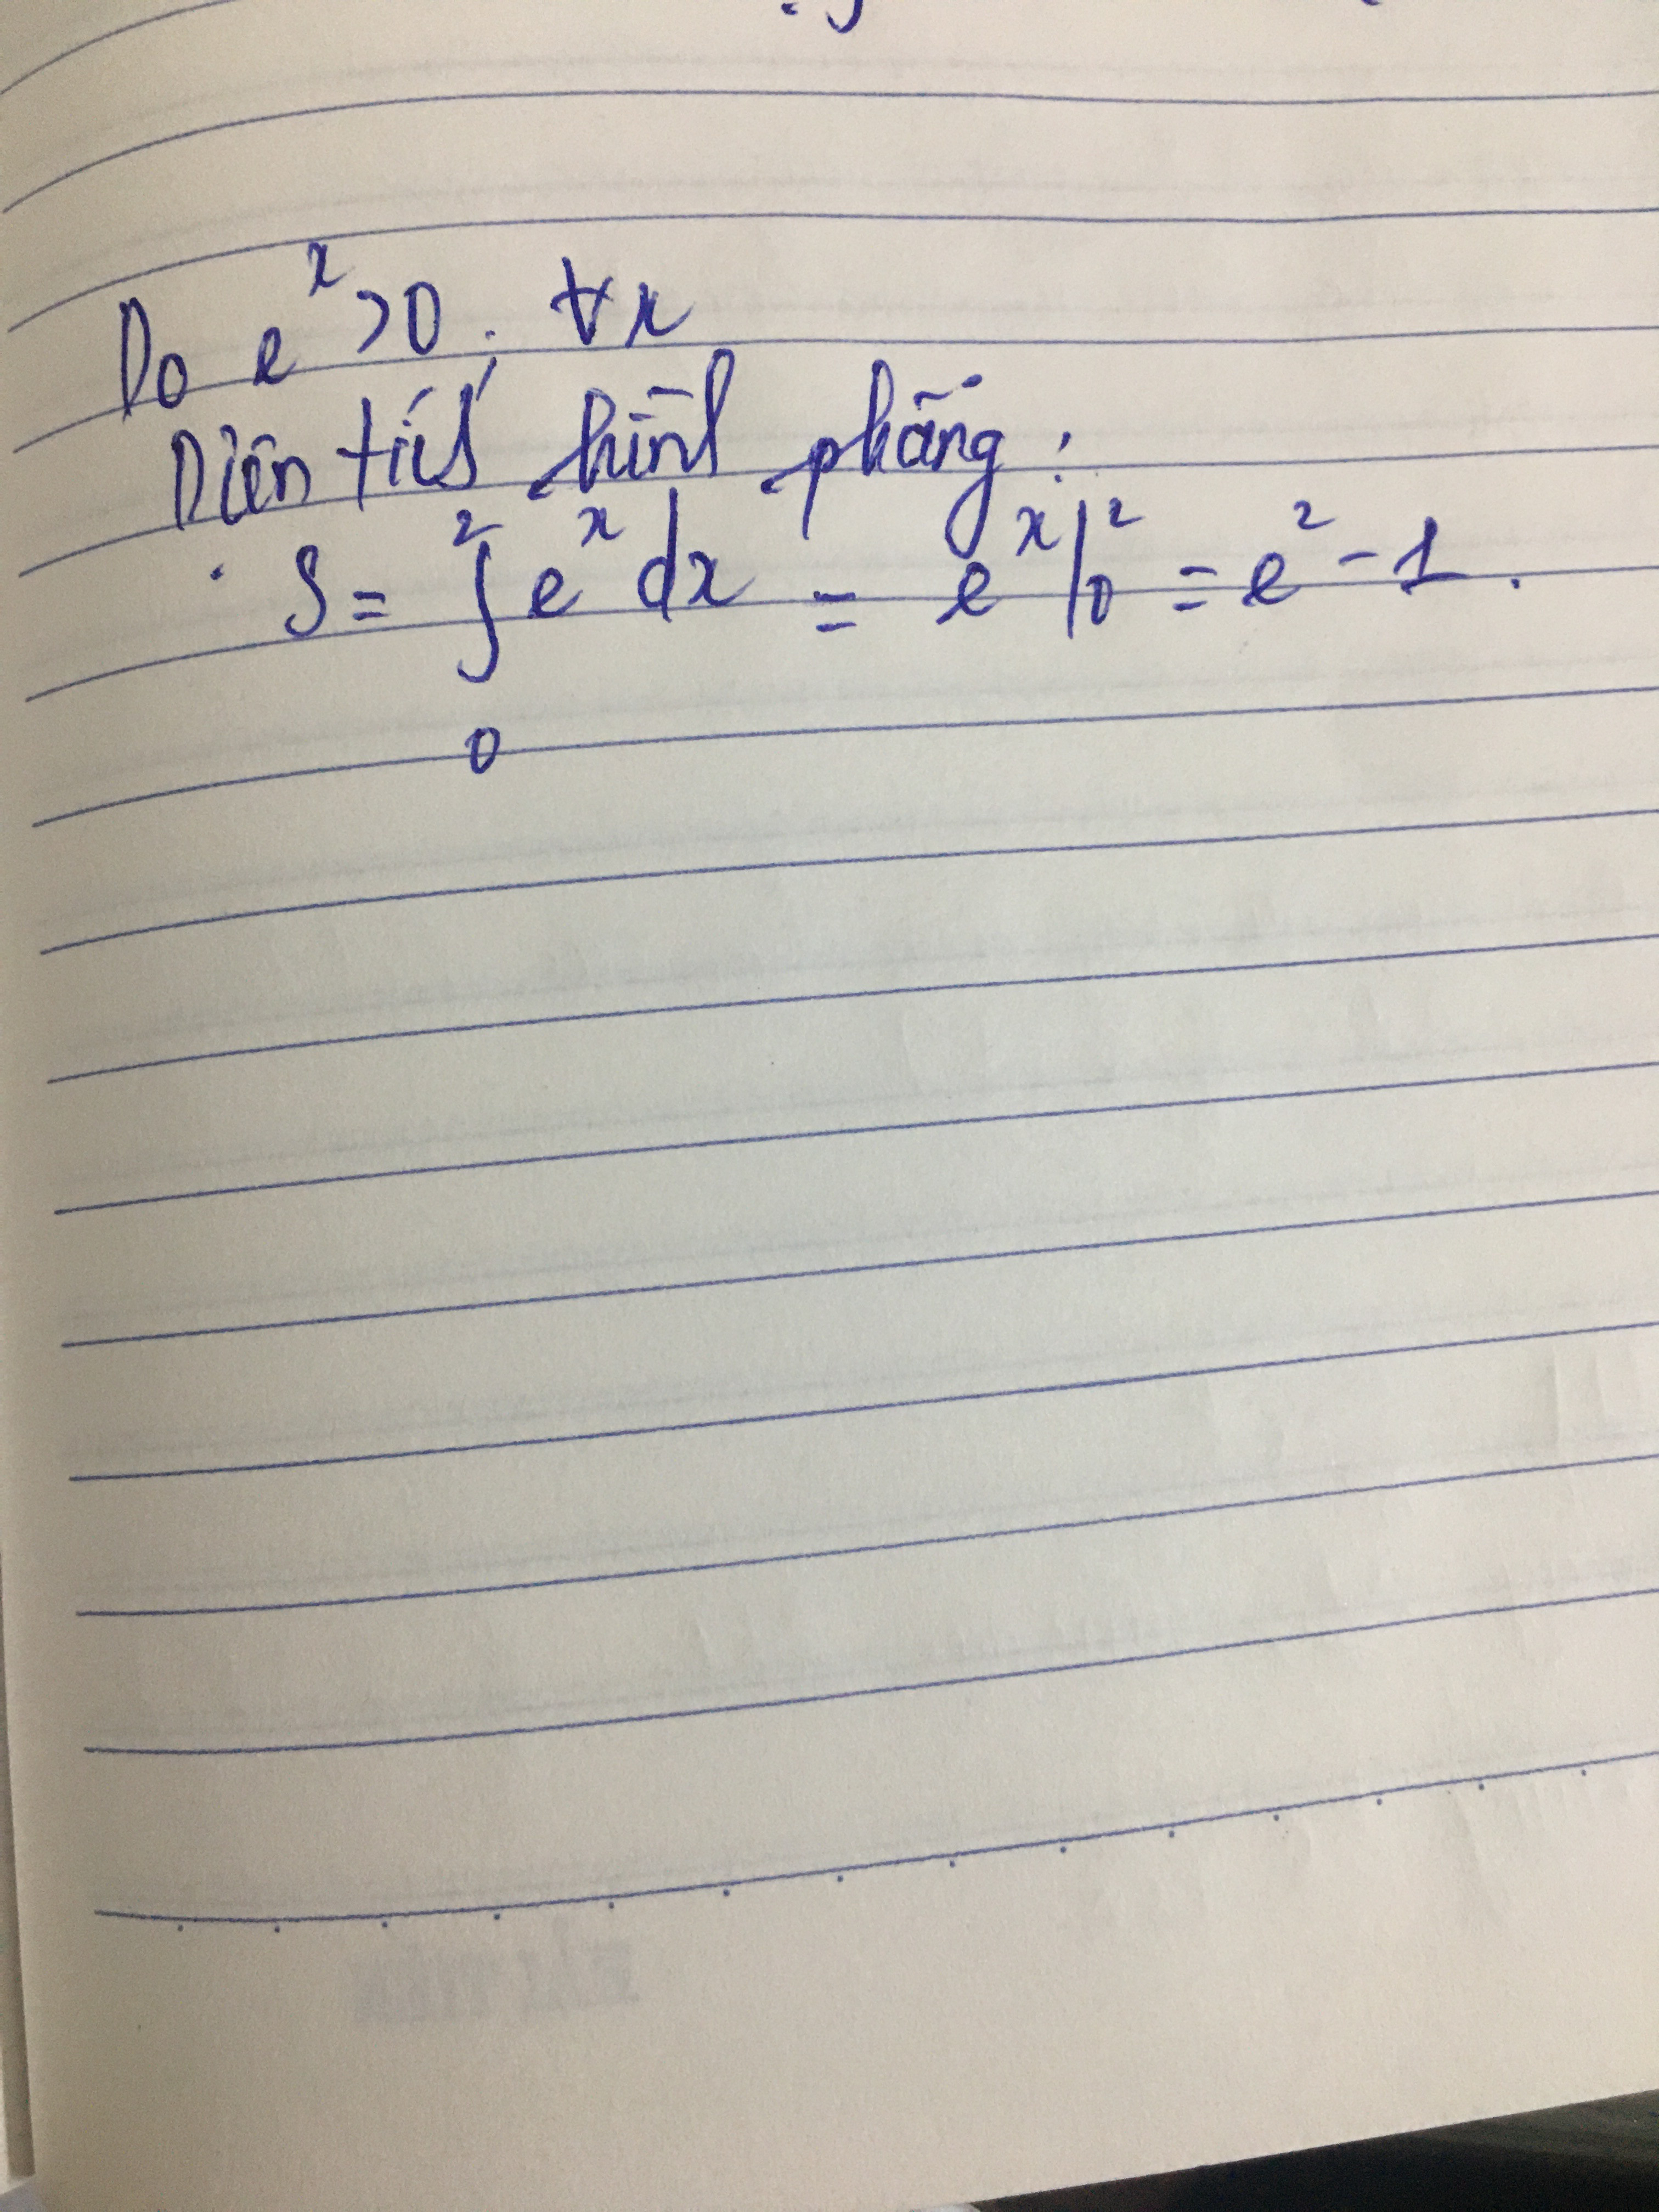 Do e^x > 0, ∀x
Diện tích hình phẳng:
S = ∫₀² e^x dx = e^x |₀² = e² - 1.